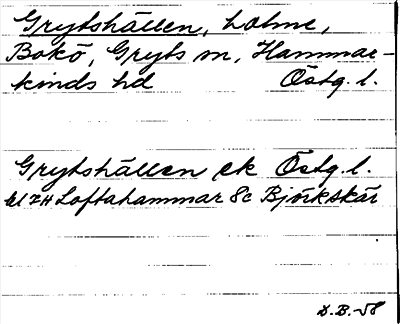 Grytshällen, holme,
Bokö, Gryts sn, Hammar-
kinds hd Östg. l.
Grytshällen ek Östg. l.
bl 7H Loftahammar 8c Björkskär
D.B.-58